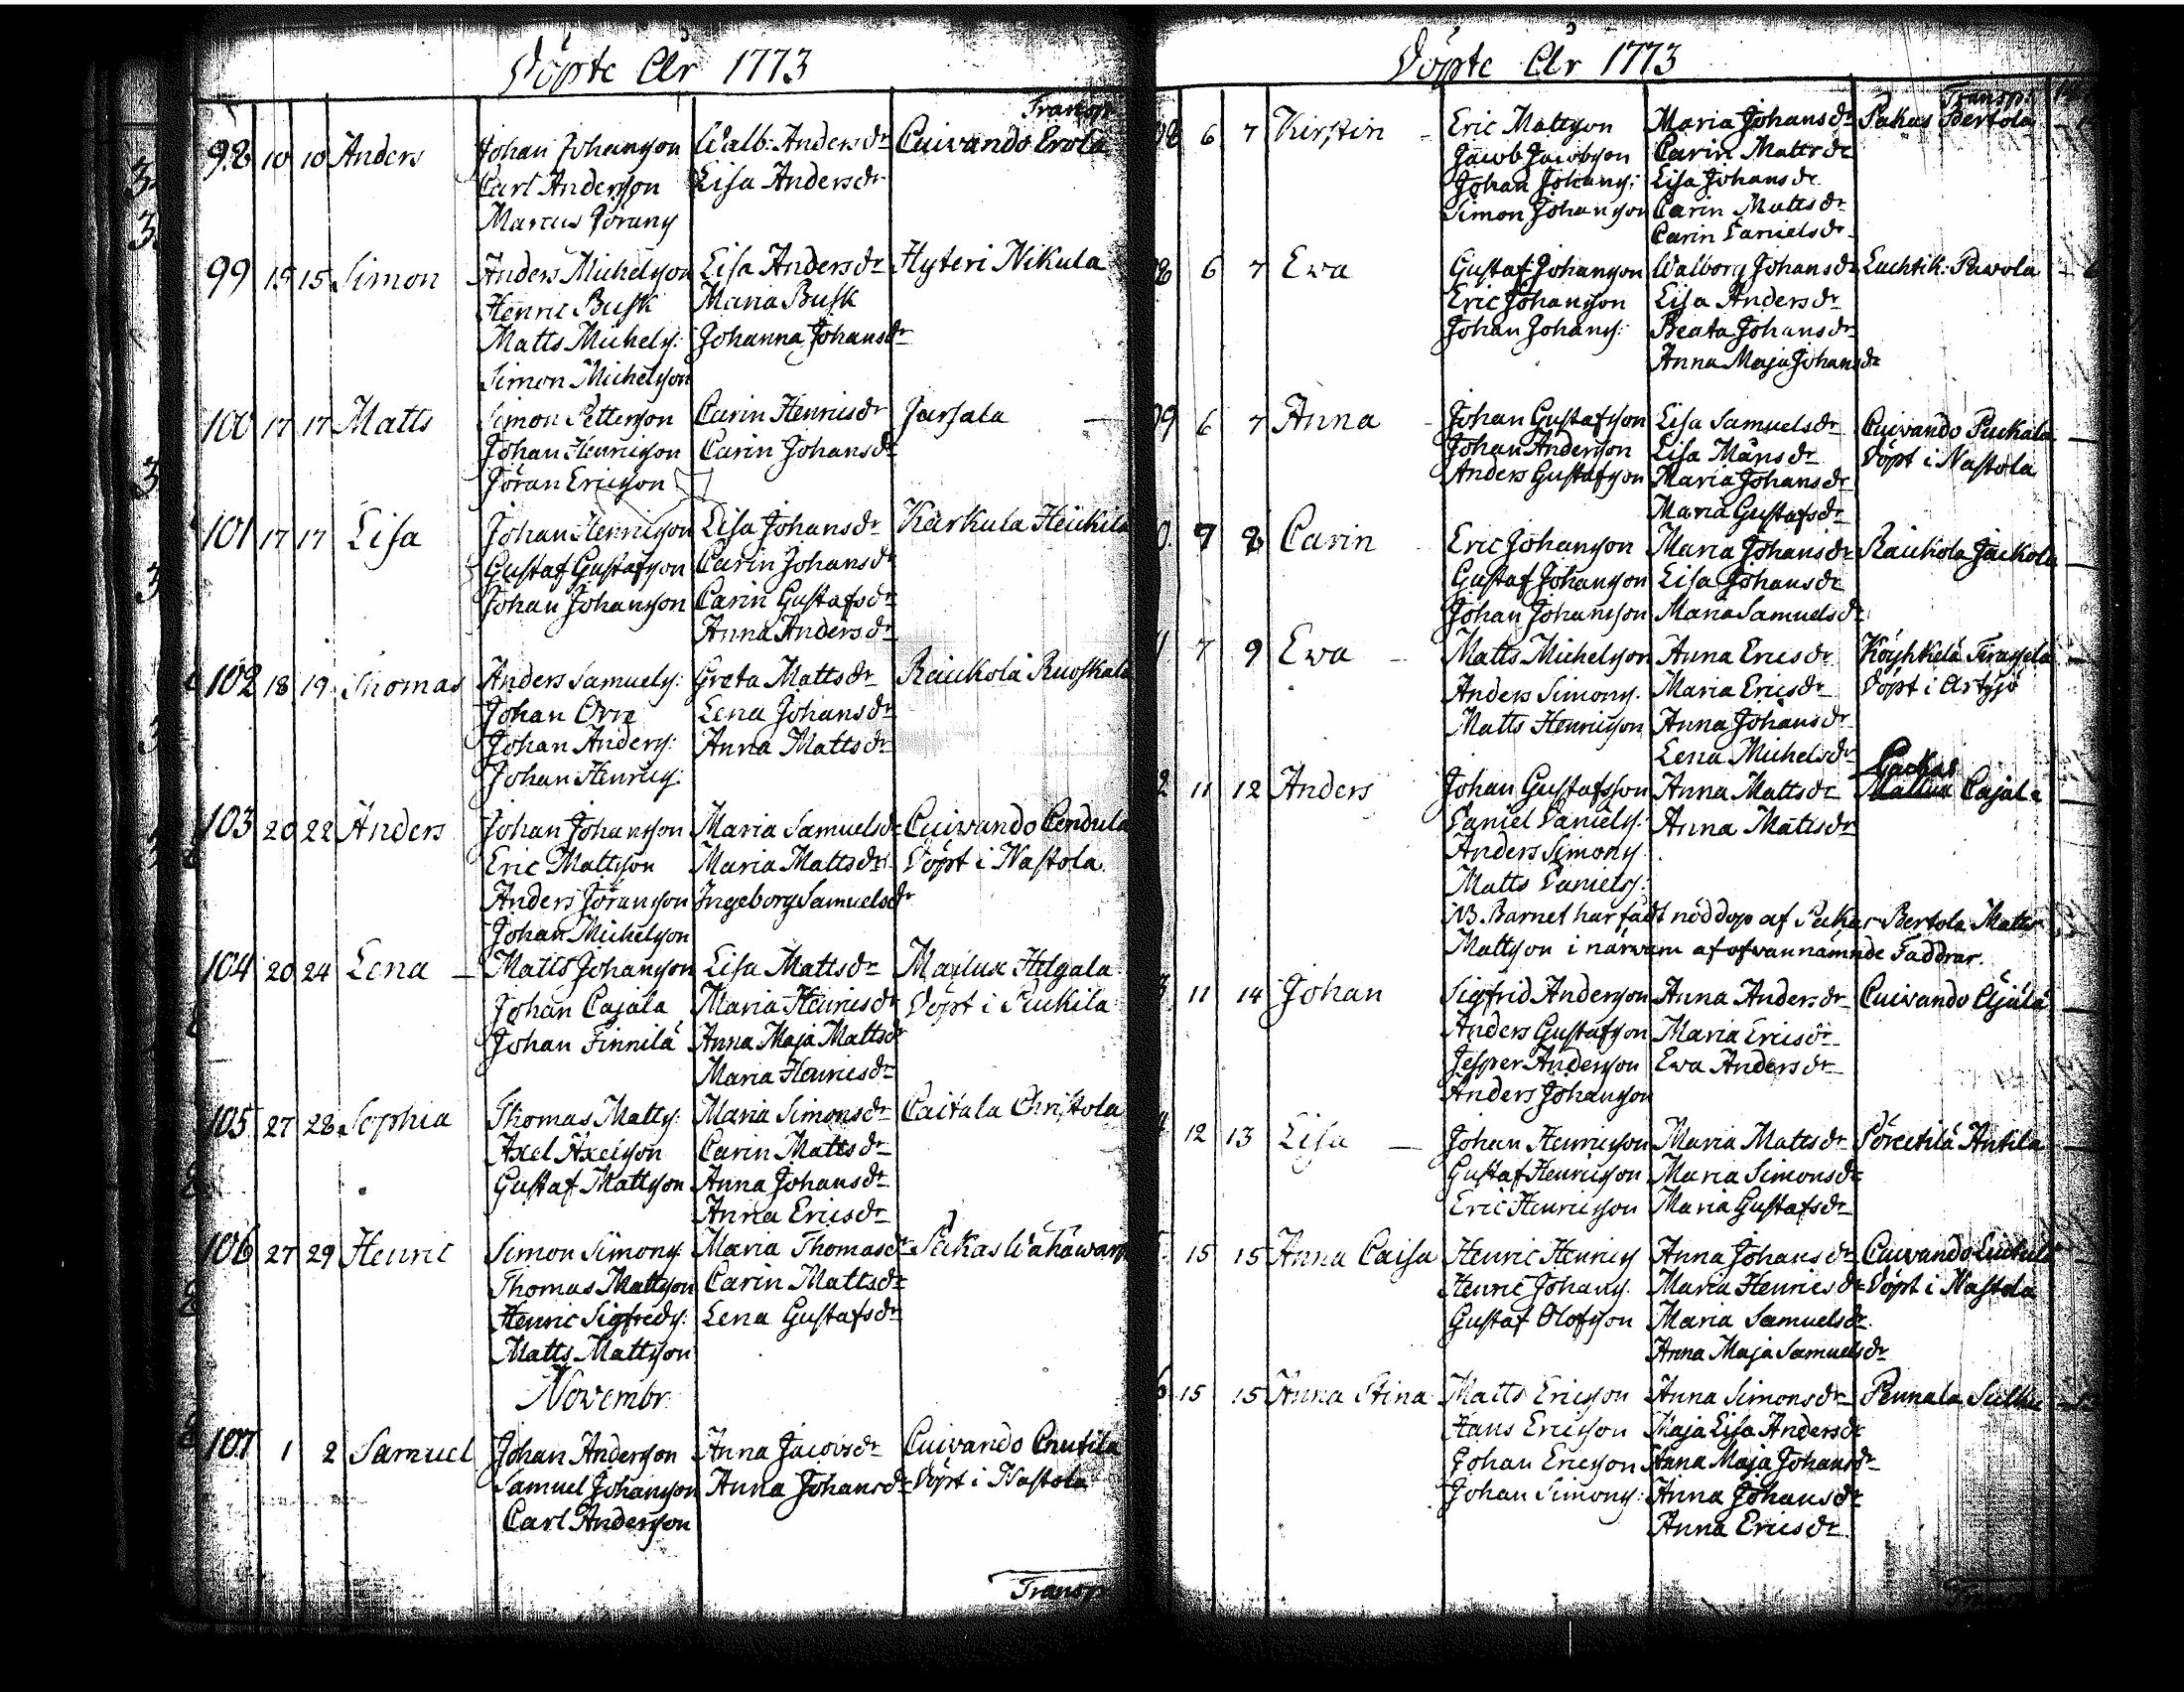 Döpte Åhr 1773
Transp
98 10 10 Anders Johan Johansson Walb: Andersdr Cuivando Erola
Carl Andersson Lisa Andersdr
Marcus Jörans
99 15 15 Simon Anders Michelsson Lisa Andersdr Hyteri Nikula
Henric Busk Maria Busk
Matts Michels: Johanna Johansdr
Simon Michelsson
100 17 17 Matts Simon Pettersson Carin Henricsdr Jarsala
Johan Henricsson Carin Johansdr
Jöran Ericsson
101 17 17 Lisa Johan Henricsson Lisa Johansdr Karkula Heickilä
Gustaf Gustafsson Carin Johansdr
Johan Johansson Carin Gustafsdr
Anna Andersdr
102 18 19 Thomas Anders Samuels: Greta Mattsdr Raickola Ruoskala
Johan Orre Lena Johansdr
Johan Anders: Anna Mattsdr
Johan Henrics:
103 20 22 Anders Johan Johansson Maria Samuelsdr Cuivando Cendula
Eric Mattsson Maria Mattsdr Döpt i Nastola
Anders Jöransson Ingeborg Samuelsdr
Johan Michelsson
104 20 24 Lena Matts Johansson Lisa Mattsdr Mailux Helgala
Johan Cajala Maria Henricsdr Döpt i Puckila
Johan Finnilä Anna Maja Mattsdr
Maria Henricsdr
105 27 28 Sophia Thomas Matts: Maria Simonsdr Caitala Christola
Axel Axelsson Carin Mattsdr
Gustaf Mattsson Anna Johansdr
Anna Ericsdr
106 27 29 Henric Simon Simons: Maria Thomasdr Pakas
Thomas Mattsson Carin Mattsdr
Henric Sigfreds: Lena Gustafsdr
Matts Mattsson
Novembr
107 1 2 Samuel Johan Andersson Anna Jacobsdr Cuivando Cnutila
Samuel Johansson Anna Johansdr Döpt i Nastola
Carl Andersson
Transp
Döpte Åhr 1773
Transp:
6 7 Kirstin Eric Mattsson Maria Johansdr Pakas Bertola
Jacob Jacobsson Carin Mattsdr
Johan Johans: Lisa Johansdr
Simon Johansson Carin Mattsdr
Carin Danielsdr
6 7 Ewa Gustaf Johansson Walborg Johansdr Luchtik: Pavola
Eric Johansson Lisa Andersdr
Johan Johans: Beata Johansdr
Anna Maja Johansdr
6 7 Anna Johan Gustafsson Lisa Samuelsdr Cuivando Puckala
Johan Andersson Lisa Månsdr Döpt i Nastola
Anders Gustafsson Maria Johansdr
Maria Gustafsdr
7 8 Carin Eric Johansson Maria Johansdr Raickola Jäckola
Gustaf Johansson Lisa Johansdr
Johan Johansson Maria Samuelsdr
7 9 Ewa Matts Michelsson Anna Ericsdr
Anders Simons: Maria Ericsdr Döpt i Artsjö
Matts Henricsson Anna Johansdr
Lena Michelsdr
11 12 Anders Johan Gustafsson Anna Mattsdr Cajala
Daniel Daniels: Anna Mattsdr
Anders Simons
Matts Daniels:
NB. Barnet har fådt nöddop af Pakas Bertola Matts
Mattson i närwaro af ofwannämnde Faddrar.
11 14 Johan Sigfrid Andersson Anna Andersdr Cuivando Äijälä
Anders Gustafsson Maria Ericsdr
Jesper Andersson Ewa Andersdr
Anders Johansson
12 13 Lisa Johan Henricsson Maria Mattsdr Antila
Gustaf Henricsson Maria Simonsdr
Eric Henricsson Maria Gustafsdr
15 15 Anna Caisa Henric Henrics Anna Johansdr Cuivando
Henric Johans. Maria Henricsdr Döpt i Nastola
Gustaf Olofsson Maria Samuelsdr
Anna Maja Samuelsdr
15 15 Anna Stina Matts Ericsson Anna Simonsdr Pennala
Hans Ericsson Maja Lisa Andersdr
Johan Ericsson Anna Maja Johansdr
Johan Simons: Anna Johansdr
Anna Ericsdr